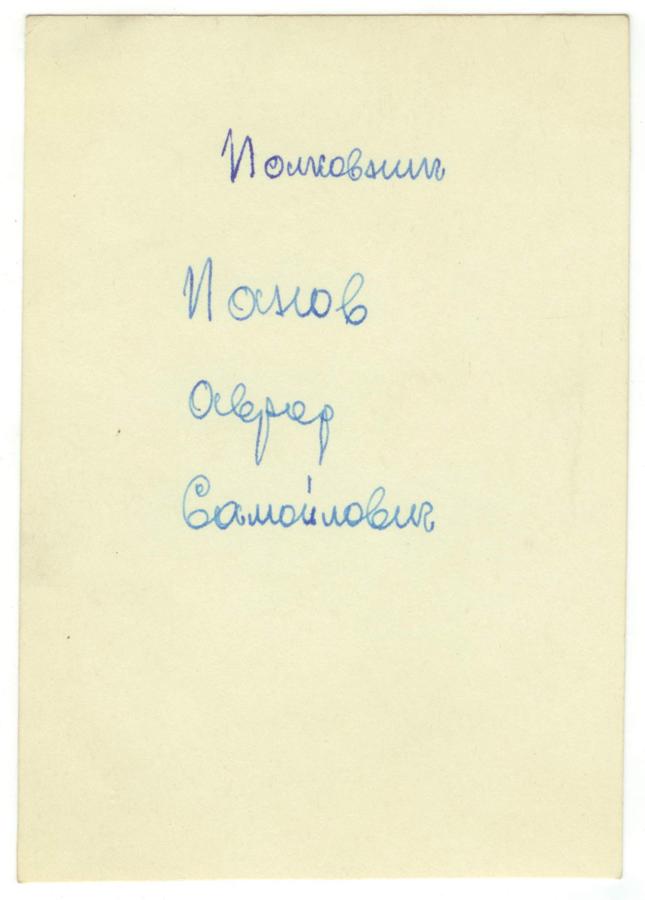 Полковник
Панов
Самойлович